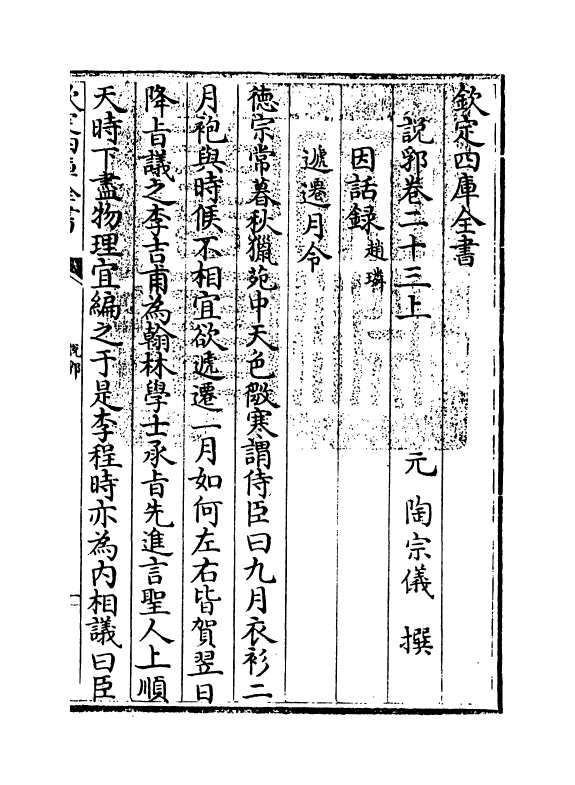 欽定四庫全書
說郛卷二十三上
元 陶宗儀 撰
因話録 趙璘
遞遷月令
徳宗常暮秋獵苑中天色㣲寒謂侍臣曰九月衣衫二
月袍與時候不相宜欲遞遷一月如何左右皆賀翌日
降㫖議之李吉甫為翰林學士承㫖先進言聖人上順
天時下盡物理宜編之于是李程時亦為内相議曰臣
欽定四庫全書
說郛